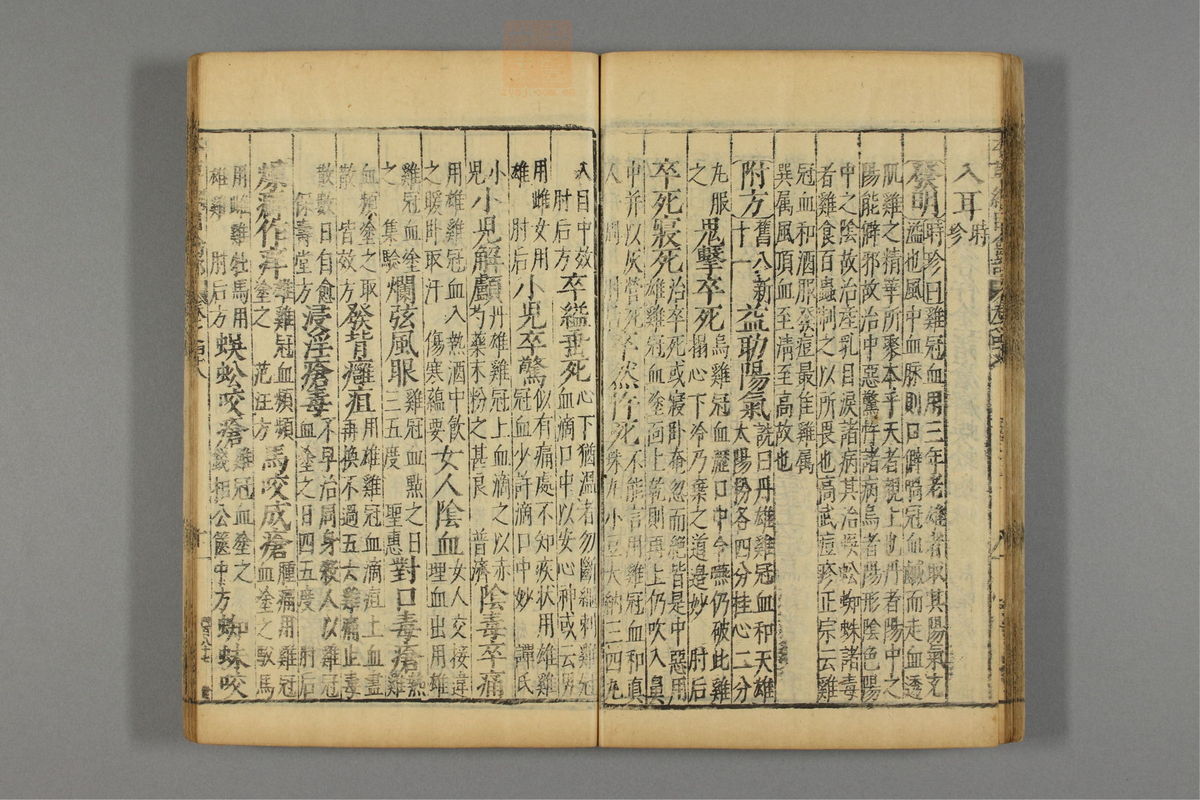 入耳時珍
發明時珍曰雞冠血用三年老雄者取其陽氣充
溢也風中血脉則口僻喎冠血鹹而走血透
肌雞之精華所聚本乎天者親上也丹者陽中之
陽能辟邪故治中惡驚忤諸病烏者陽形陰色陽
中之陰故治產乳目淚諸病其治蜈蚣蜘蛛諸毒
者雞食百蟲制之以所畏也高武痘疹正宗云雞
冠血和酒服發痘最佳雞屬
巽屬風頂血至清至高故也
附方舊八新十一
益助陽氣詵曰丹雄雞冠血和天雄
太陽各四分桂心二分
丸服
鬼擊卒死烏雞冠血瀝口中令嚥仍破此雞
之搨心下冷乃棄之道邊妙 肘后
卒死寢死治卒死或寢卧奄忽而絕皆是中惡用
雄雞冠血塗面上乾則再上仍吹入鼻
中并以灰營死 不能言用雞冠血和真
珠丸小豆大納三四丸
入
目中效
肘后方
卒縊垂死心下猶溫者勿斷繩刺雞冠
血滴口中以安心神或云男
用雌女用
雄 肘后
小兒卒驚似有痛處不知疾狀用雄雞
冠血少許滴口中妙 譚氏
小
兒
小兒解顱丹雄雞冠上血滴之以赤
芍藥末粉之甚良 普濟
陰毒卒痛
用雄雞冠血入熱酒中飲
之暖卧取汗 傷寒蘊要
女人陰血女人交接違
理血出用雄
雞冠血塗
之 集驗
爛弦風眼雞冠血點之日
三五度 聖惠
對口毒瘡熱雞
血頻塗之取
散 皆效方
發背癰疽用雄雞冠血滴疽上血盡
再換不過五六雞痛止毒
散數日自愈
保壽堂方
浸淫瘡毒不早治周身殺人以雞
冠血塗之日四五度 肘后
雞冠血頻頻
塗之 范汪方
馬咬成瘡腫痛用雞冠
血塗之駁馬
用雌雞牡馬用
雄雞 肘后方
蜈蚣咬瘡雞冠血塗之
錢相公篋中方
蜘蛛咬